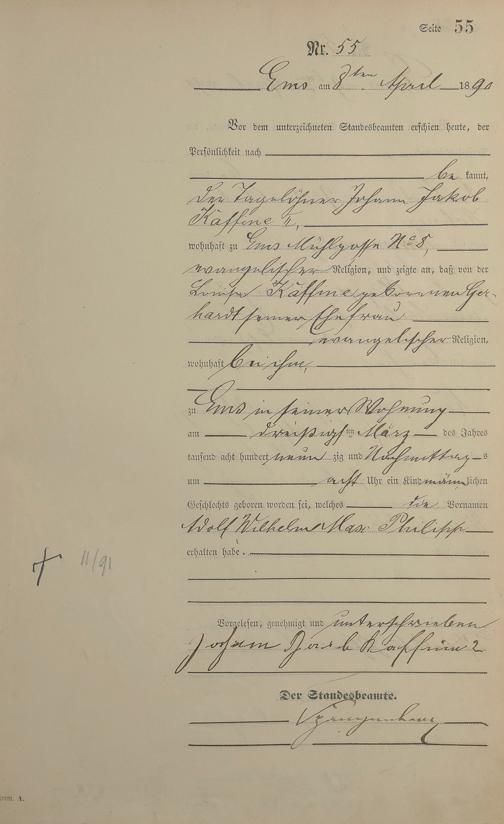 Seite 55
Nr. 55
Ems am 8ten April 1890
Vor dem unterzeichneten Standesbeamten erschien heute, der
Persönlichkeit nach
be kannt,
der Tagelöhner Johann Jakob
Kaffine II,
wohnhaft zu Ems Mühlgasse No 8,
evangelischer Religion, und zeigte an, daß von der
Louise Kaffine geborenen Ger-
hardt seiner Ehefrau
evangelischer Religion,
wohnhaft bei ihm,
zu Ems in seiner Wohnung
am dreißigsten März des Jahres
tausend acht hundert neun zig und Nachmittags
um acht Uhr ein Kind männlichen
Geschlechts geboren worden sei, welches die Vornamen
Adolf Wilhelm Max Philipp
erhalten habe.
† 11/91
Vorgelesen, genehmigt und unterschrieben
Johann Jacob Kaffine 2
Der Standesbeamte.